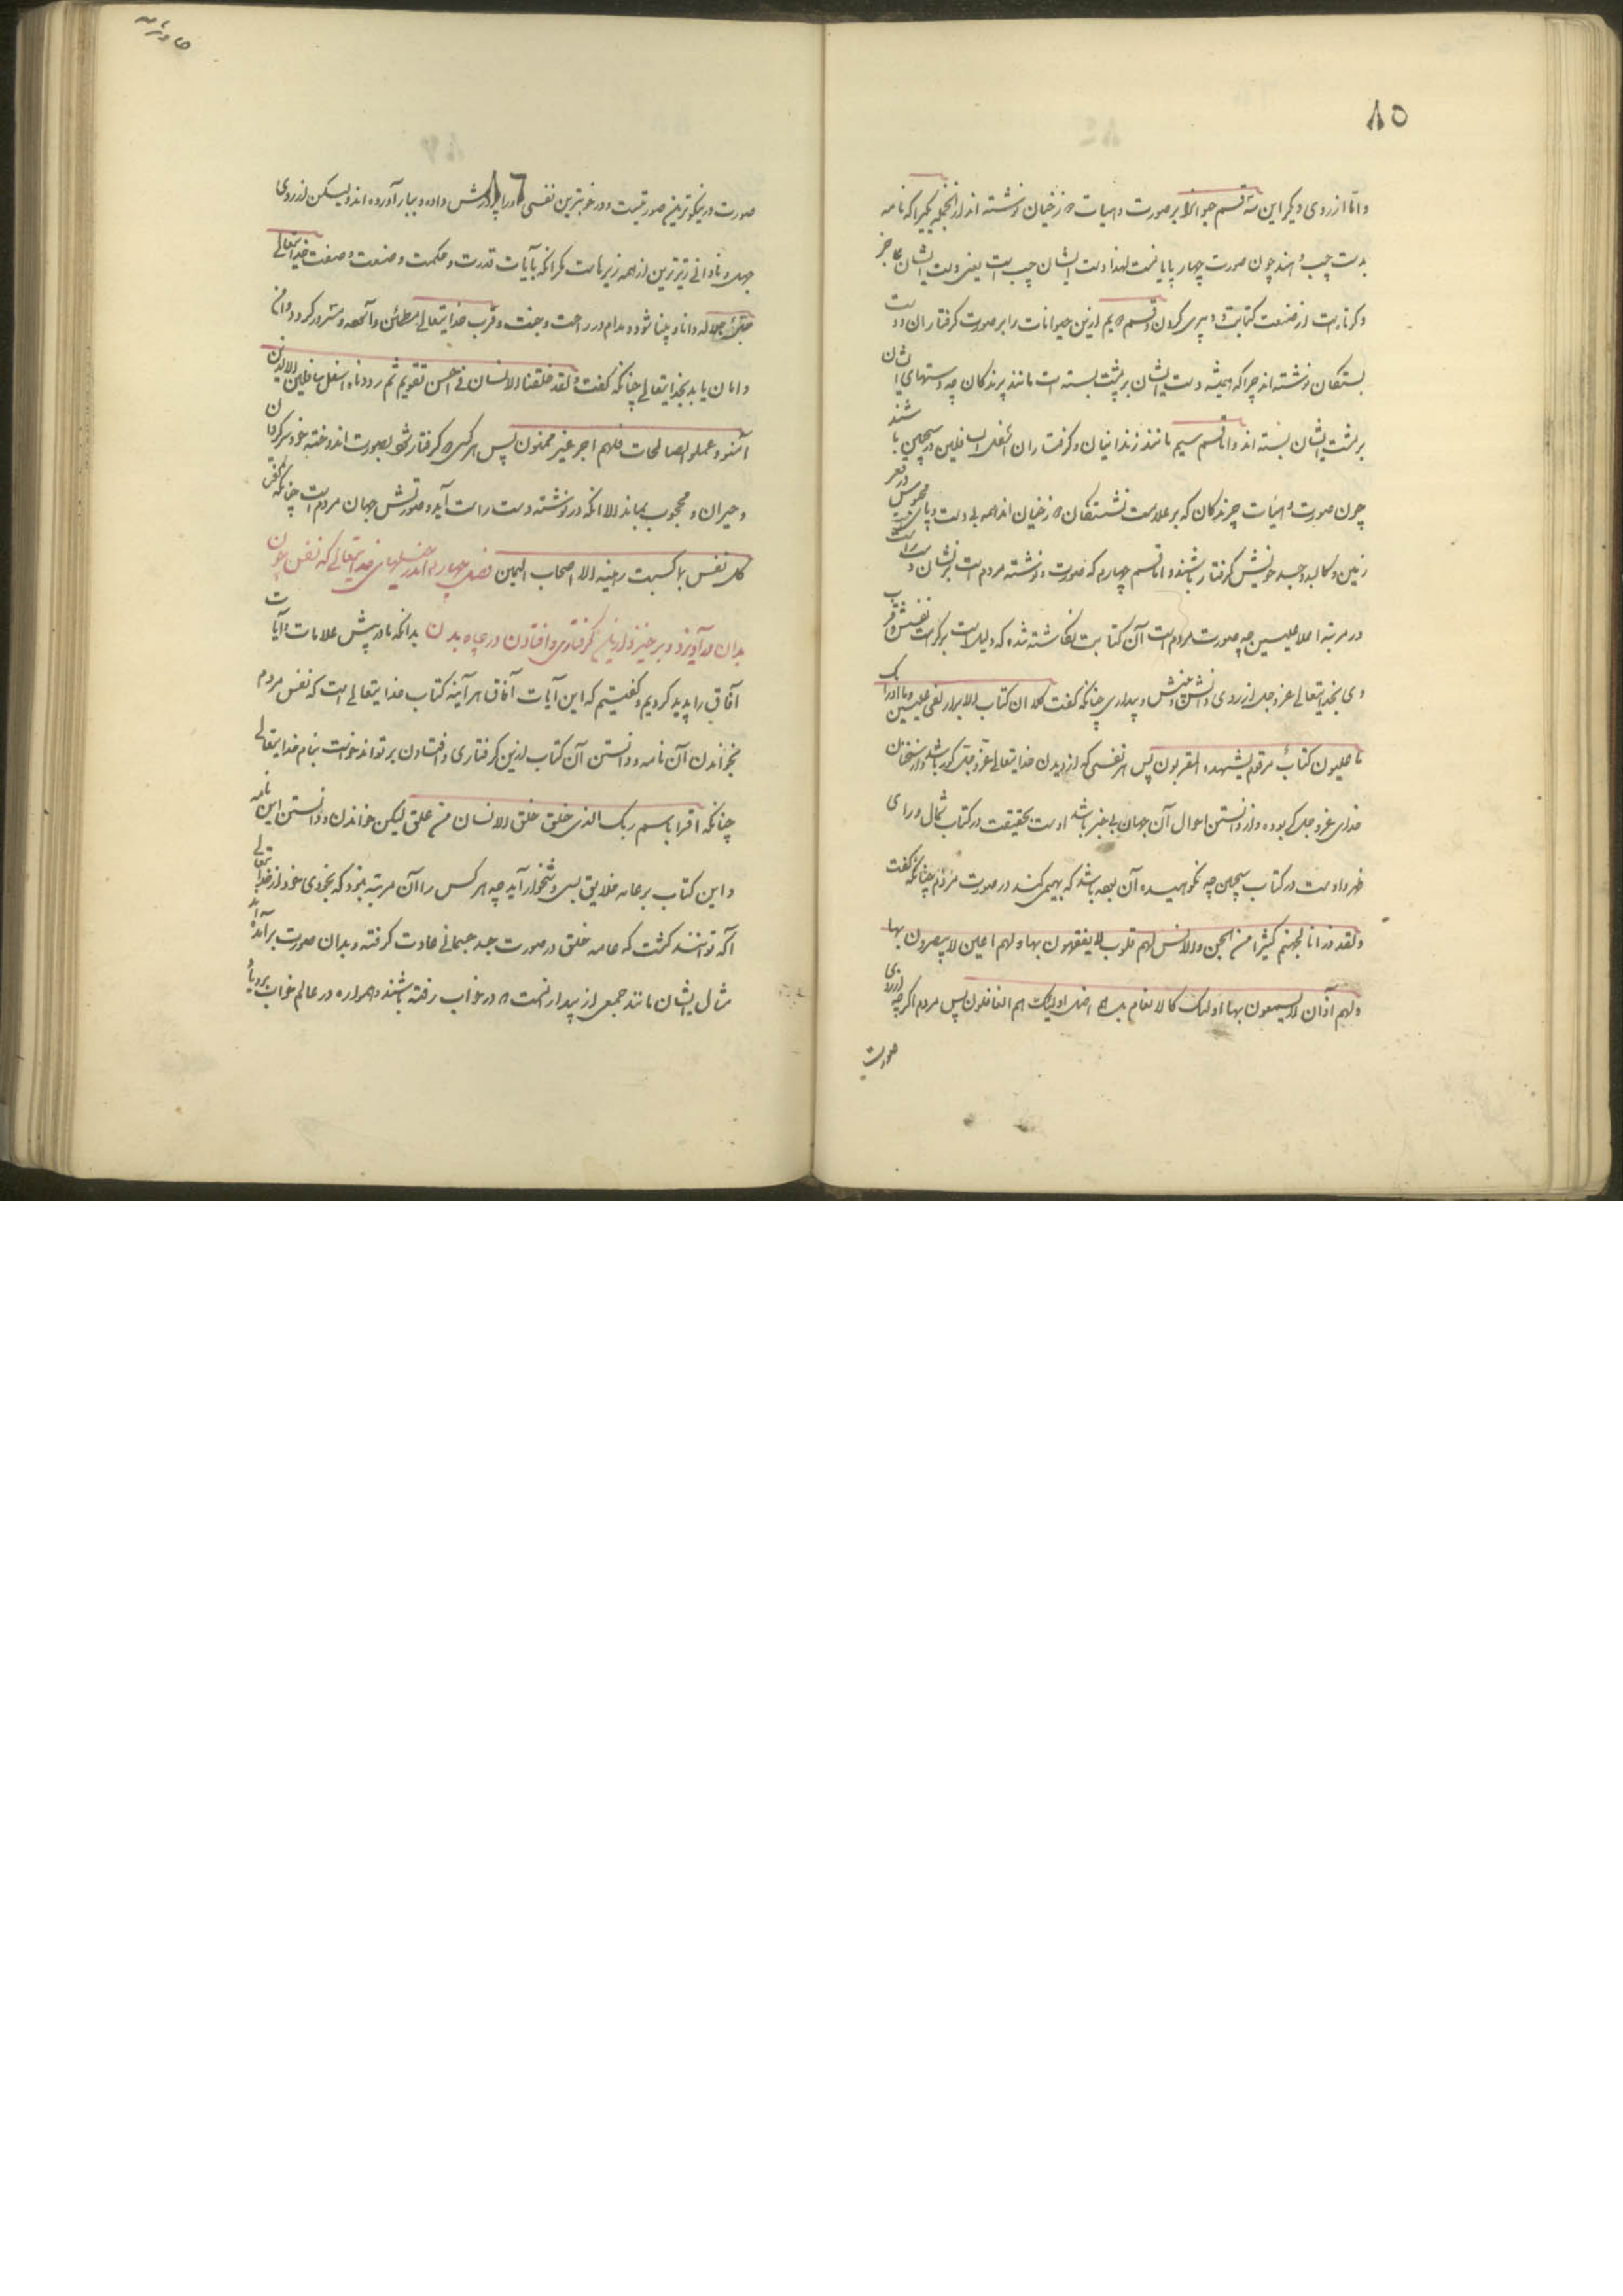 ۸۵
و اما از روی دیگر این سه قسم حیوانرا بر صورت و هیات دوزخیان نوشته اند از انجمله یکیرا که نامه
بدست چپ دهند چون صورت چهار پایانست لهذا دست ایشان چپ است یعنی دست ایشان عاجز
و کوتاه است از صنعت کتابت و دبیری کردن و قسم دویم ازین حیوانات را بر صورت گرفتاران و دست
بستگان نوشته اند چرا که همیشه دست ایشان بر پشت بسته است مانند پرندگان چه دستهای ایشان
بر پشت ایشان بسته اند و اما قسم سیم مانند زندانیان و گرفتاران اسفل السافلین در سجین باشند
چون صورت و هیات چرندگان که بر علامت نشستگان دوزخیان اند همه بی دست و پای محبوس در قعر
زمین و کالبد و جسد خویش گرفتار باشند و اما قسم چهارم که صورت و نوشته مردم است بر نشان دست راست
در مرتبه اعلا علیین چه صورت مردم است آن کتابت نگاشته شده که دلیل است بر کرامت نفسش و قرب
وی بخدایتعالی عز و جل از روی دانش و بینش و بیداری چنانکه گفت کلا ان کتاب الابرار لفی علیین و ما ادراک
ما علیون کتاب مرقوم یشهده المقربون پس هر نفسی که از دیدن خدایتعالی عز و جل کور باشد و از سخنان
خدای عز و جل کر بوده و از دانستن احوال آن جهان بی خبر باشد اوست بحقیقت در کتاب شمال و رای
ظهر و اوست در کتاب سجین چه نکوهیده آن بهیمه باشد که بهیمی کند در صورت مردم چنانکه گفت
و لقد ذرانا لجهنم کثیرا من الجن و الانس لهم قلوب لا یفقهون بها و لهم اعین لا یبصرون بها
و لهم آذان لا یسمعون بها اولئک کالانعام بل هم اضل اولئک هم الغافلون پس مردم اگر چه از روی
صورت
۸۶
صورت در نیکوترین صورتیست و در خوبترین نفسی او را پرورش داده و ببار آورده اند ولیکن از روی
جهل و نادانی زیرترین از همه زیرهاست مگر انکه بآیات قدرت و حکمت و صنعت و صفت خدایتعالی
جل جلاله دانا و بینا شود و مدام در راحت و جنت و قرب خدایتعالی مطمئن و آسوده و مسرور گردد و امن
و امان یابد بخدایتعالی چنانکه گفت و لقد خلقنا الانسان فی احسن تقویم ثم رددناه اسفل سافلین الا الذین
آمنو و عملو الصالحات فلهم اجر غیر ممنون پس هر کس که گرفتار شود بصورت اندوخته خود سرگردان
و حیران و محجوب بماند الا انکه در نوشته دست راست آید و صورتش جهان مردم است چنانکه گفت
کل نفس بما کسبت رهینه الا اصحاب الیمین فصل چهارم اندر حبلهای خدایتعالی که نفس چون
بدان در آویزد و برخیزد از رنج گرفتاری و افتادن در چاه بدن بدانکه ما در پیش علامات و آیات
آفاق را پدید کردیم و گفتیم که این آیات آفاق هر آینه کتاب خدایتعالی است که نفس مردم
بخواندن آن نامه و دانستن آن کتاب ازین گرفتاری و افتادن بر تواند خواست بنام خدایتعالی
چنانکه اقرا باسم ربک الذی خلق خلق الانسان من علق لیکن خواندن و دانستن این نامه
و این کتاب بر عامه خلایق بسی دشخوار آید چه هر کس را آن مرتبه نبود که بخودی خود از خدایتعالی
آگه توانند گشت که عامه خلق در صورت جسد جسمانی عادت گرفته و بدان صورت بر آمده اند
مثال ایشان مانند جمعی از بیدار نیست که در خواب رفته باشند و همواره در عالم خواب